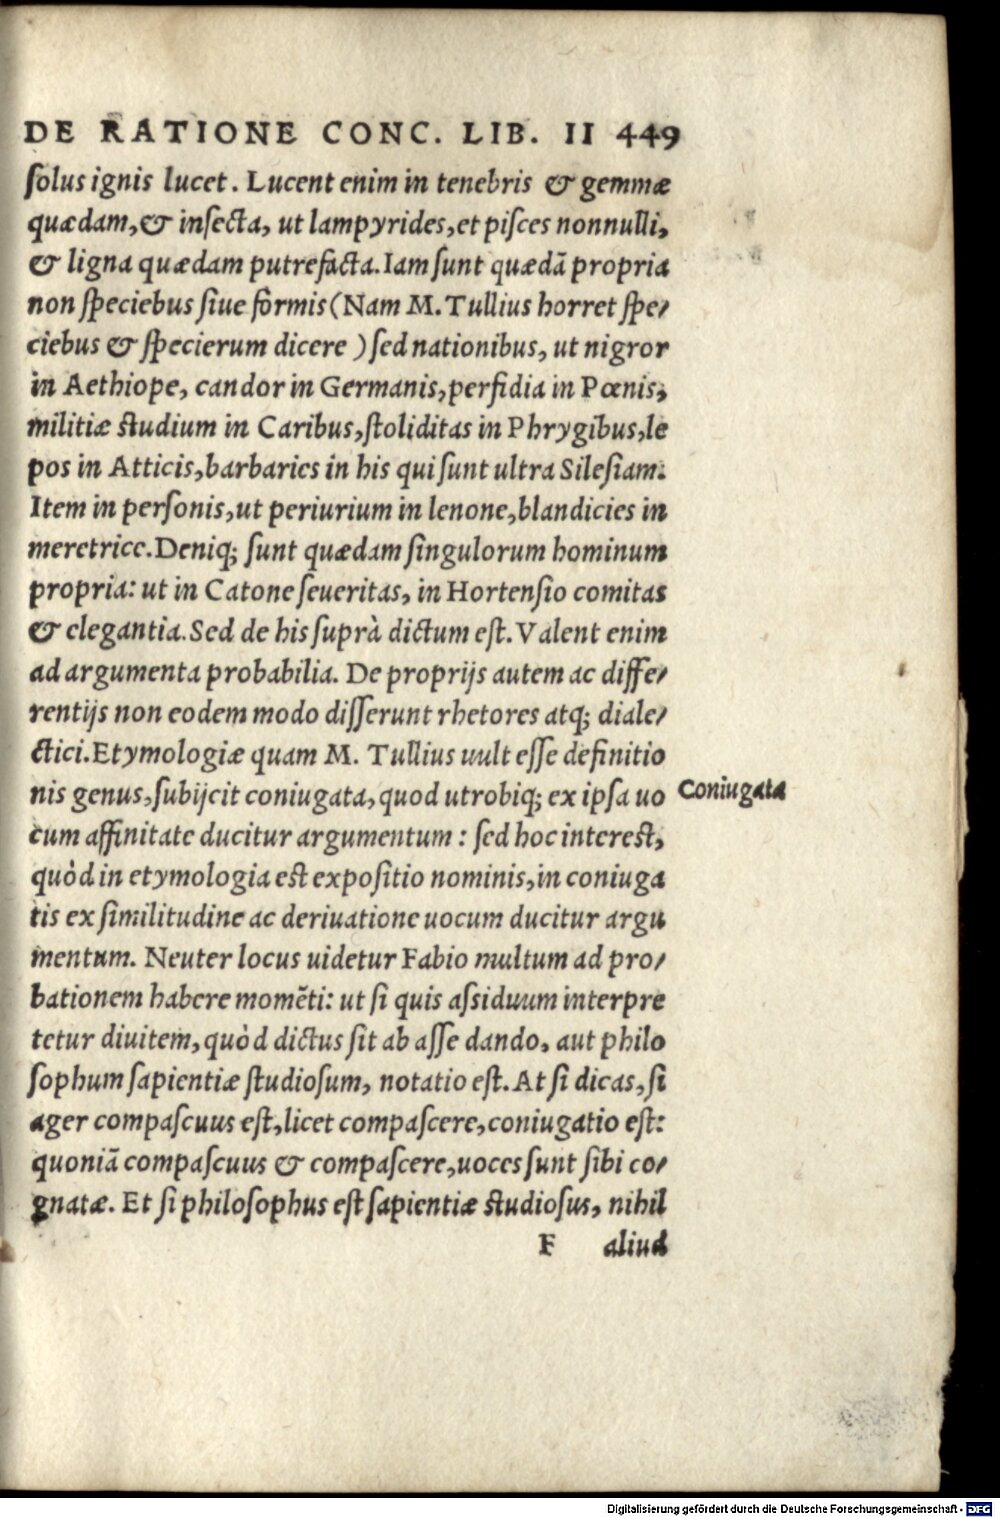 DE RATIONE CONC. LIB. II 449
ſolus ignis lucet. Lucent enim in tenebris & gemmæ
quædam, & inſecta, ut lampyrides, et piſces nonnulli,
& ligna quædam putrefacta. Iam ſunt quædã propria
non ſpeciebus ſiue formis (Nam M. Tullius horret ſpe/
ciebus & ſpecierum dicere) ſed nationibus, ut nigror
in Aethiope, candor in Germanis, perfidia in Pœnis,
militiæ ſtudium in Caribus, ſtoliditas in Phrygibus, le
pos in Atticis, barbaries in his qui ſunt ultra Sileſiam.
Item in perſonis, ut periurium in lenone, blandicies in
meretrice. Deniq; ſunt quædam ſingulorum hominum
propria: ut in Catone ſeueritas, in Hortenſio comitas
& elegantia. Sed de his ſuprà dictum eſt. Valent enim
ad argumenta probabilia. De proprijs autem ac diffe/
rentijs non eodem modo diſſerunt rhetores atq; diale/
ctici. Etymologiæ quam M. Tullius uult eſſe definitio
nis genus, ſubijcit coniugata, quod utrobiq; ex ipſa uo
Coniugata
cum affinitate ducitur argumentum: ſed hoc intereſt,
quòd in etymologia eſt expoſitio nominis, in coniuga
tis ex ſimilitudine ac deriuatione uocum ducitur argu
mentum. Neuter locus uidetur Fabio multum ad pro/
bationem habere momẽti: ut ſi quis aſsiduum interpre
tetur diuitem, quòd dictus ſit ab aſſe dando, aut philo
ſophum ſapientiæ ſtudioſum, notatio eſt. At ſi dicas, ſi
ager compaſcuus eſt, licet compaſcere, coniugatio eſt:
quoniã compaſcuus & compaſcere, uoces ſunt ſibi co/
gnatæ. Et ſi philoſophus eſt ſapientiæ ſtudioſus, nihil
F aliud
Digitalisierung gefördert durch die Deutsche Forschungsgemeinschaft - DFG